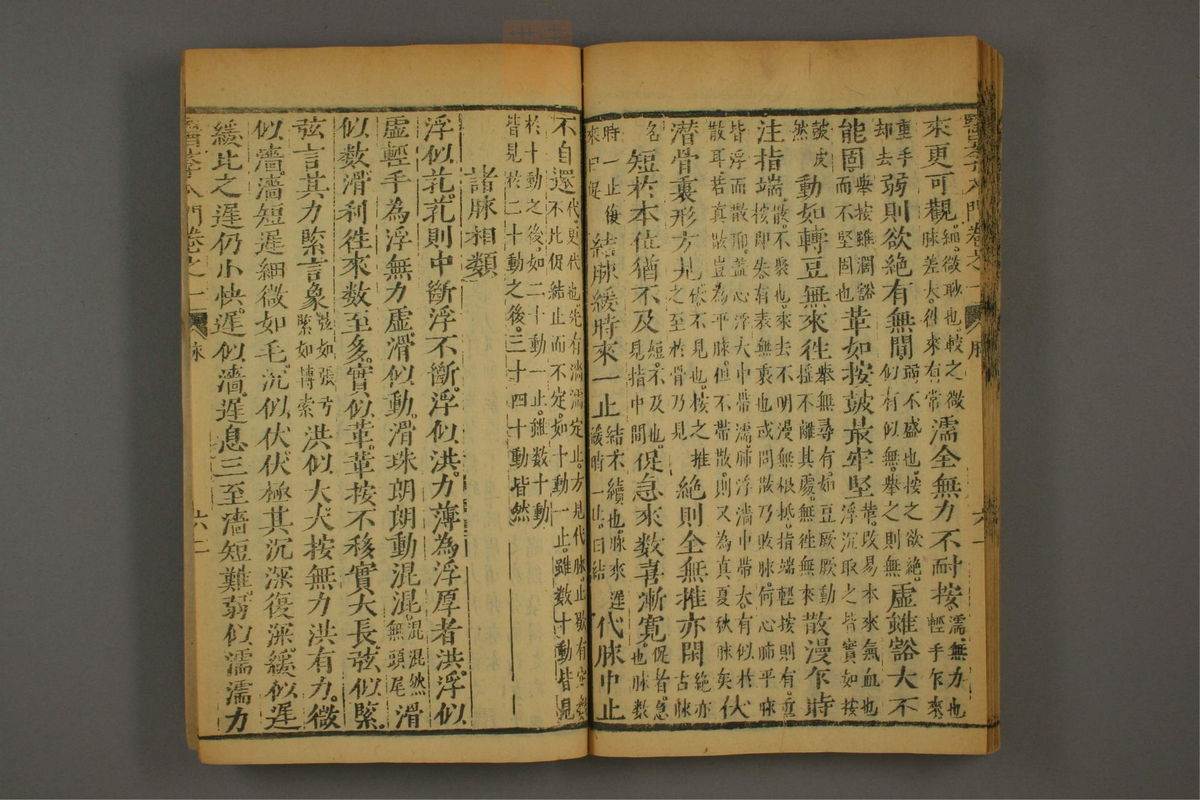 來更可觀。細,微眇也,較之微脉差大,徃來有常濡全無力不耐按。濡,無力也。輕手乍來
重手却去弱則欲絕有無間弱,不盛也。按之欲絕。似有似無。舉之則無虛雖豁大不
能固。舉按雖濶豁而不堅固也革如按皷最牢堅革,改易本來氣血也。浮沉取之皆實如按
皷皮然動如轉豆無來徃舉無尋有,如豆厥厥動搖不離其處,無徃無來散漫乍時
注指端。散,不聚也。來去不明漫無根抵。指端輕按則有,重按即失。有表無裏也或問散乃敗脉。何心肺平脉
皆浮而散聊。蓋心浮大中帶濡。肺浮濇中帶大。有似於散耳。若真散豈為平脉。但不帶散,則又為真夏秋脉矣伏
潛骨裏形方見伏,不見也。按之推之至於骨乃見絕則全無推亦閑絕亦古脉
名短於本位猶不及短,不及也。見指中間促急來數喜漸寬。促者,急也脉數
時一止復來曰促結脉緩時來一止結,不續也。脉來遲緩時一止。曰結代脉中止
不自還代,更代也。先有濇濡定止。方見代脉。止歇有定數不比促結止而不定。如十動一止。雖數十動皆見
於十動之後。如二十動一止。雖數十動皆見於二十動之後。三十四十動皆然
諸脉相類
浮似芤。芤則中斷浮不斷。浮似洪。力薄為浮厚者洪。浮似
虛。輕手為浮無力虛。滑似動。滑珠朗朗動混混。混混然無頭尾滑
似數。滑利徃來數至多。實似革。革按不移實大長。弦似緊。
弦言其力緊言象。弦如張弓緊如轉索洪似大。大按無力洪有力。微
似濇。濇短遲細微如毛。沉似伏。伏極其沉深復深。緩似遲
緩比之遲仍小快。遲似濇。遲息三至濇短難。弱似濡濡力
醫學入門 卷之一 脉 六二